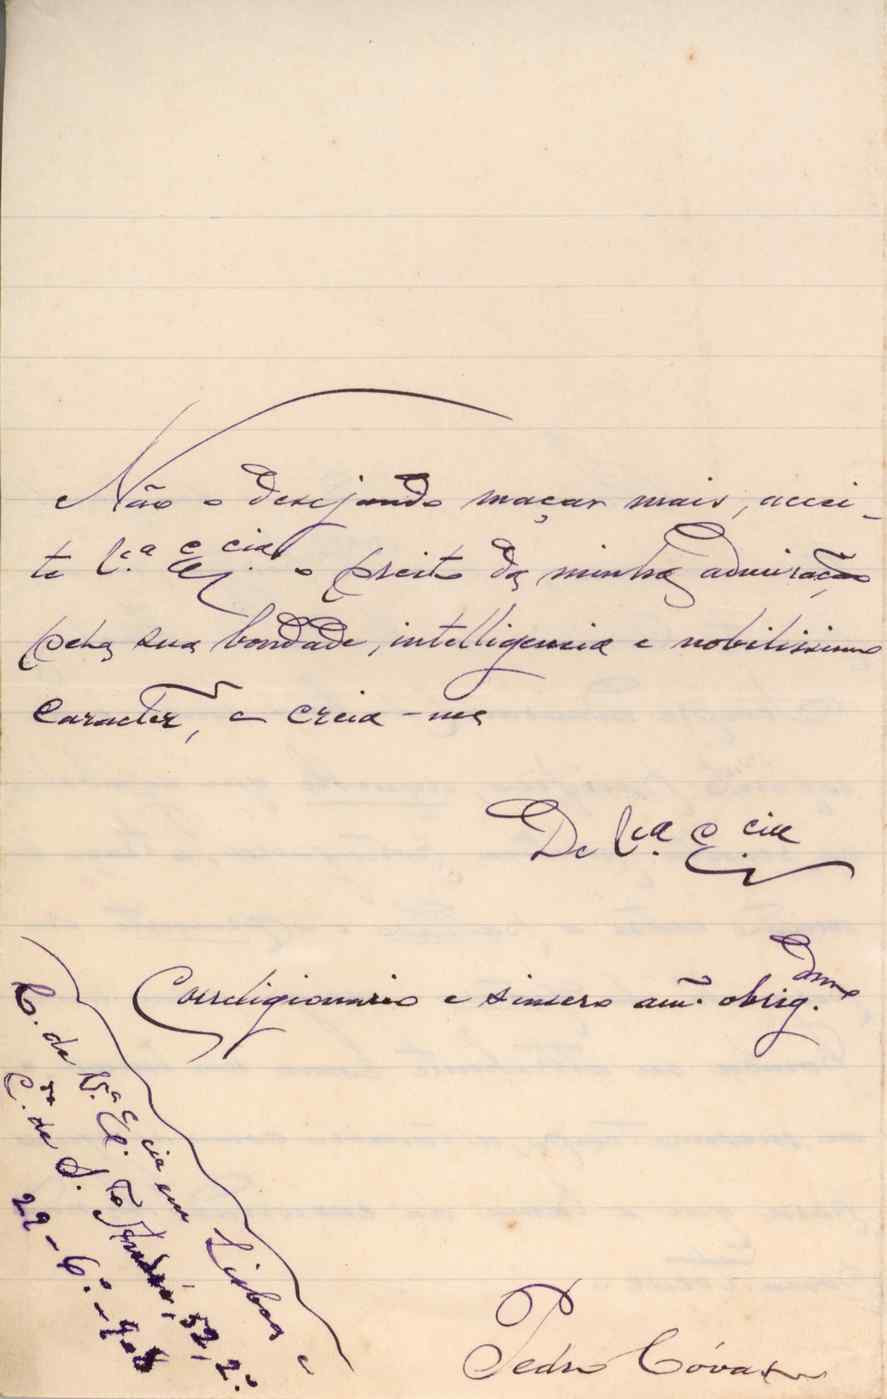 Não o desejando maçar mais, accei-
te V.ª E.cia o preito da minha admiração
pela sua bondade, intelligencia e nobilissimo
caracter, e creia-me
De V.ª E.cia
Correligionario e sincero am.º obrig.dmo
C. da V.ª E.cia em Lisboa e
C.da de S.to André, 52, 2.º
22-6.º-908
Pedro Cóvas